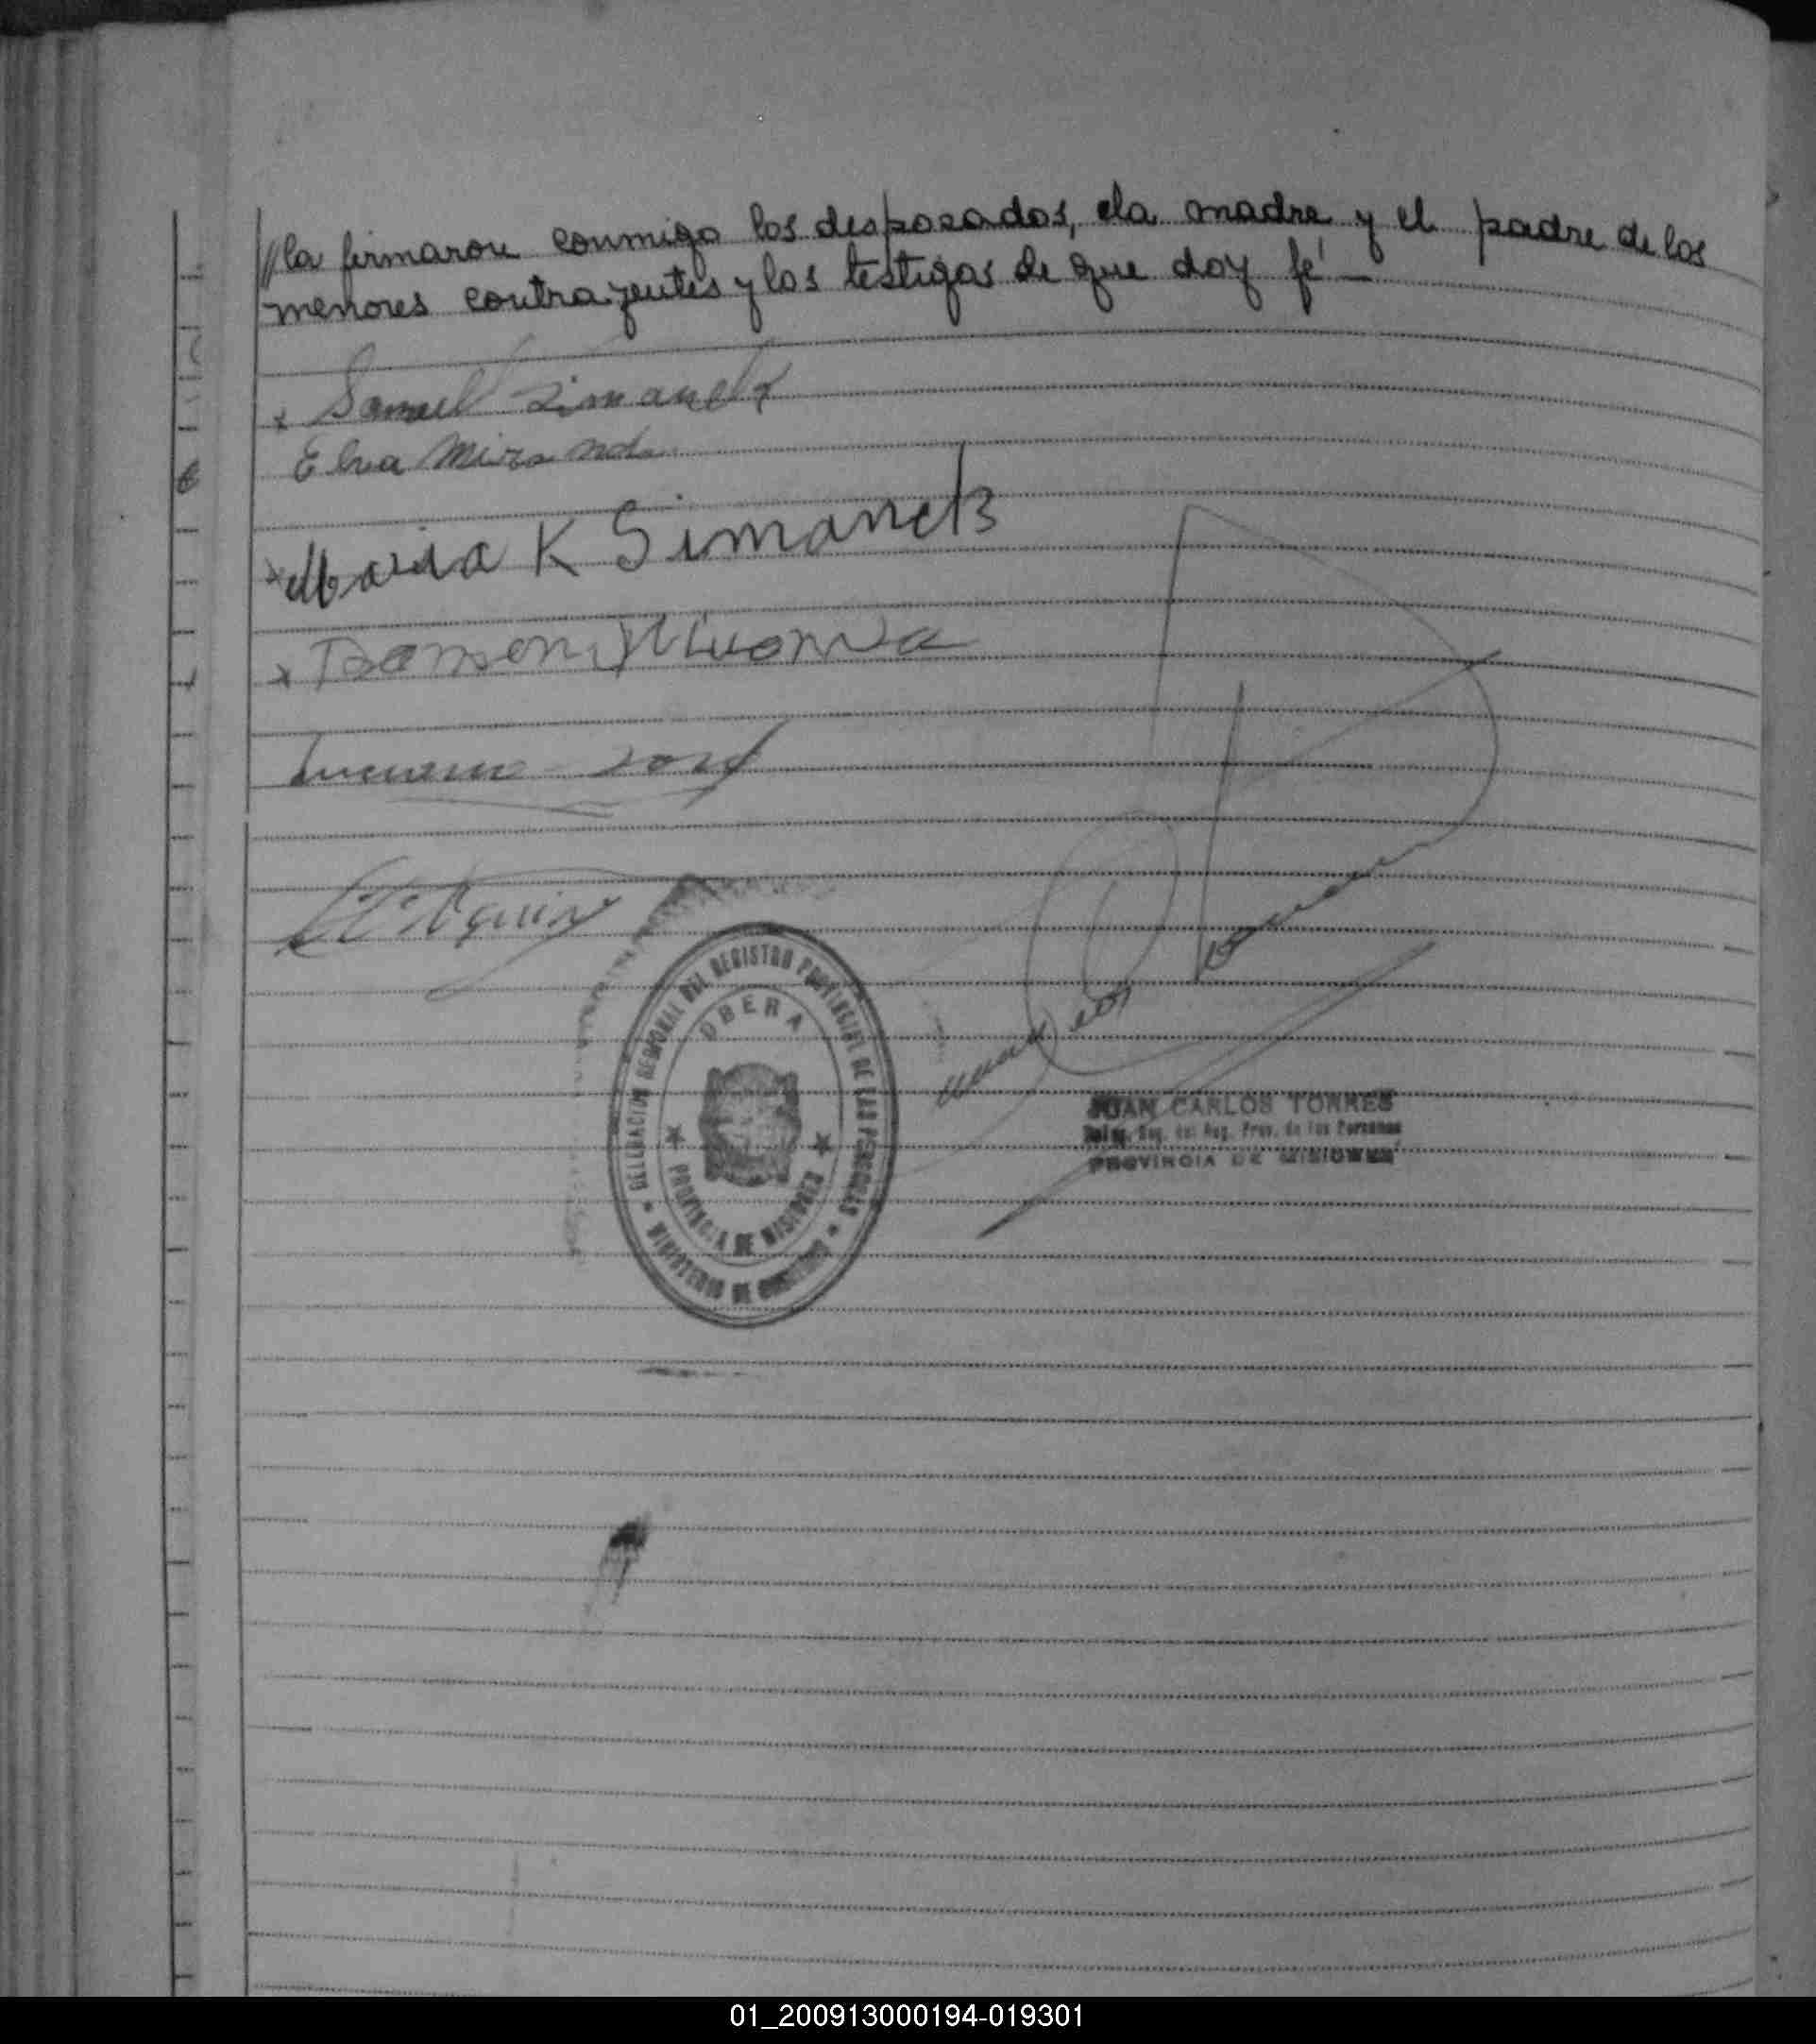 //la firmaron conmigo los desposados, la madre y el padre de los
menores contrayentes y los testigos de que doy fé —
x Samuel Simanek
Elva Miranda
x Maria K Simanek
x Ramon Miranda
Luciano
DELEGACION REGIONAL DEL REGISTRO PROVINCIAL DE LAS PERSONAS
OBERA
PROVINCIA DE MISIONES
MINISTERIO DE GOBIERNO
JUAN CARLOS TORRES
Deleg. Reg. del Reg. Prov. de las Personas
PROVINCIA DE MISIONES
01_200913000194-019301